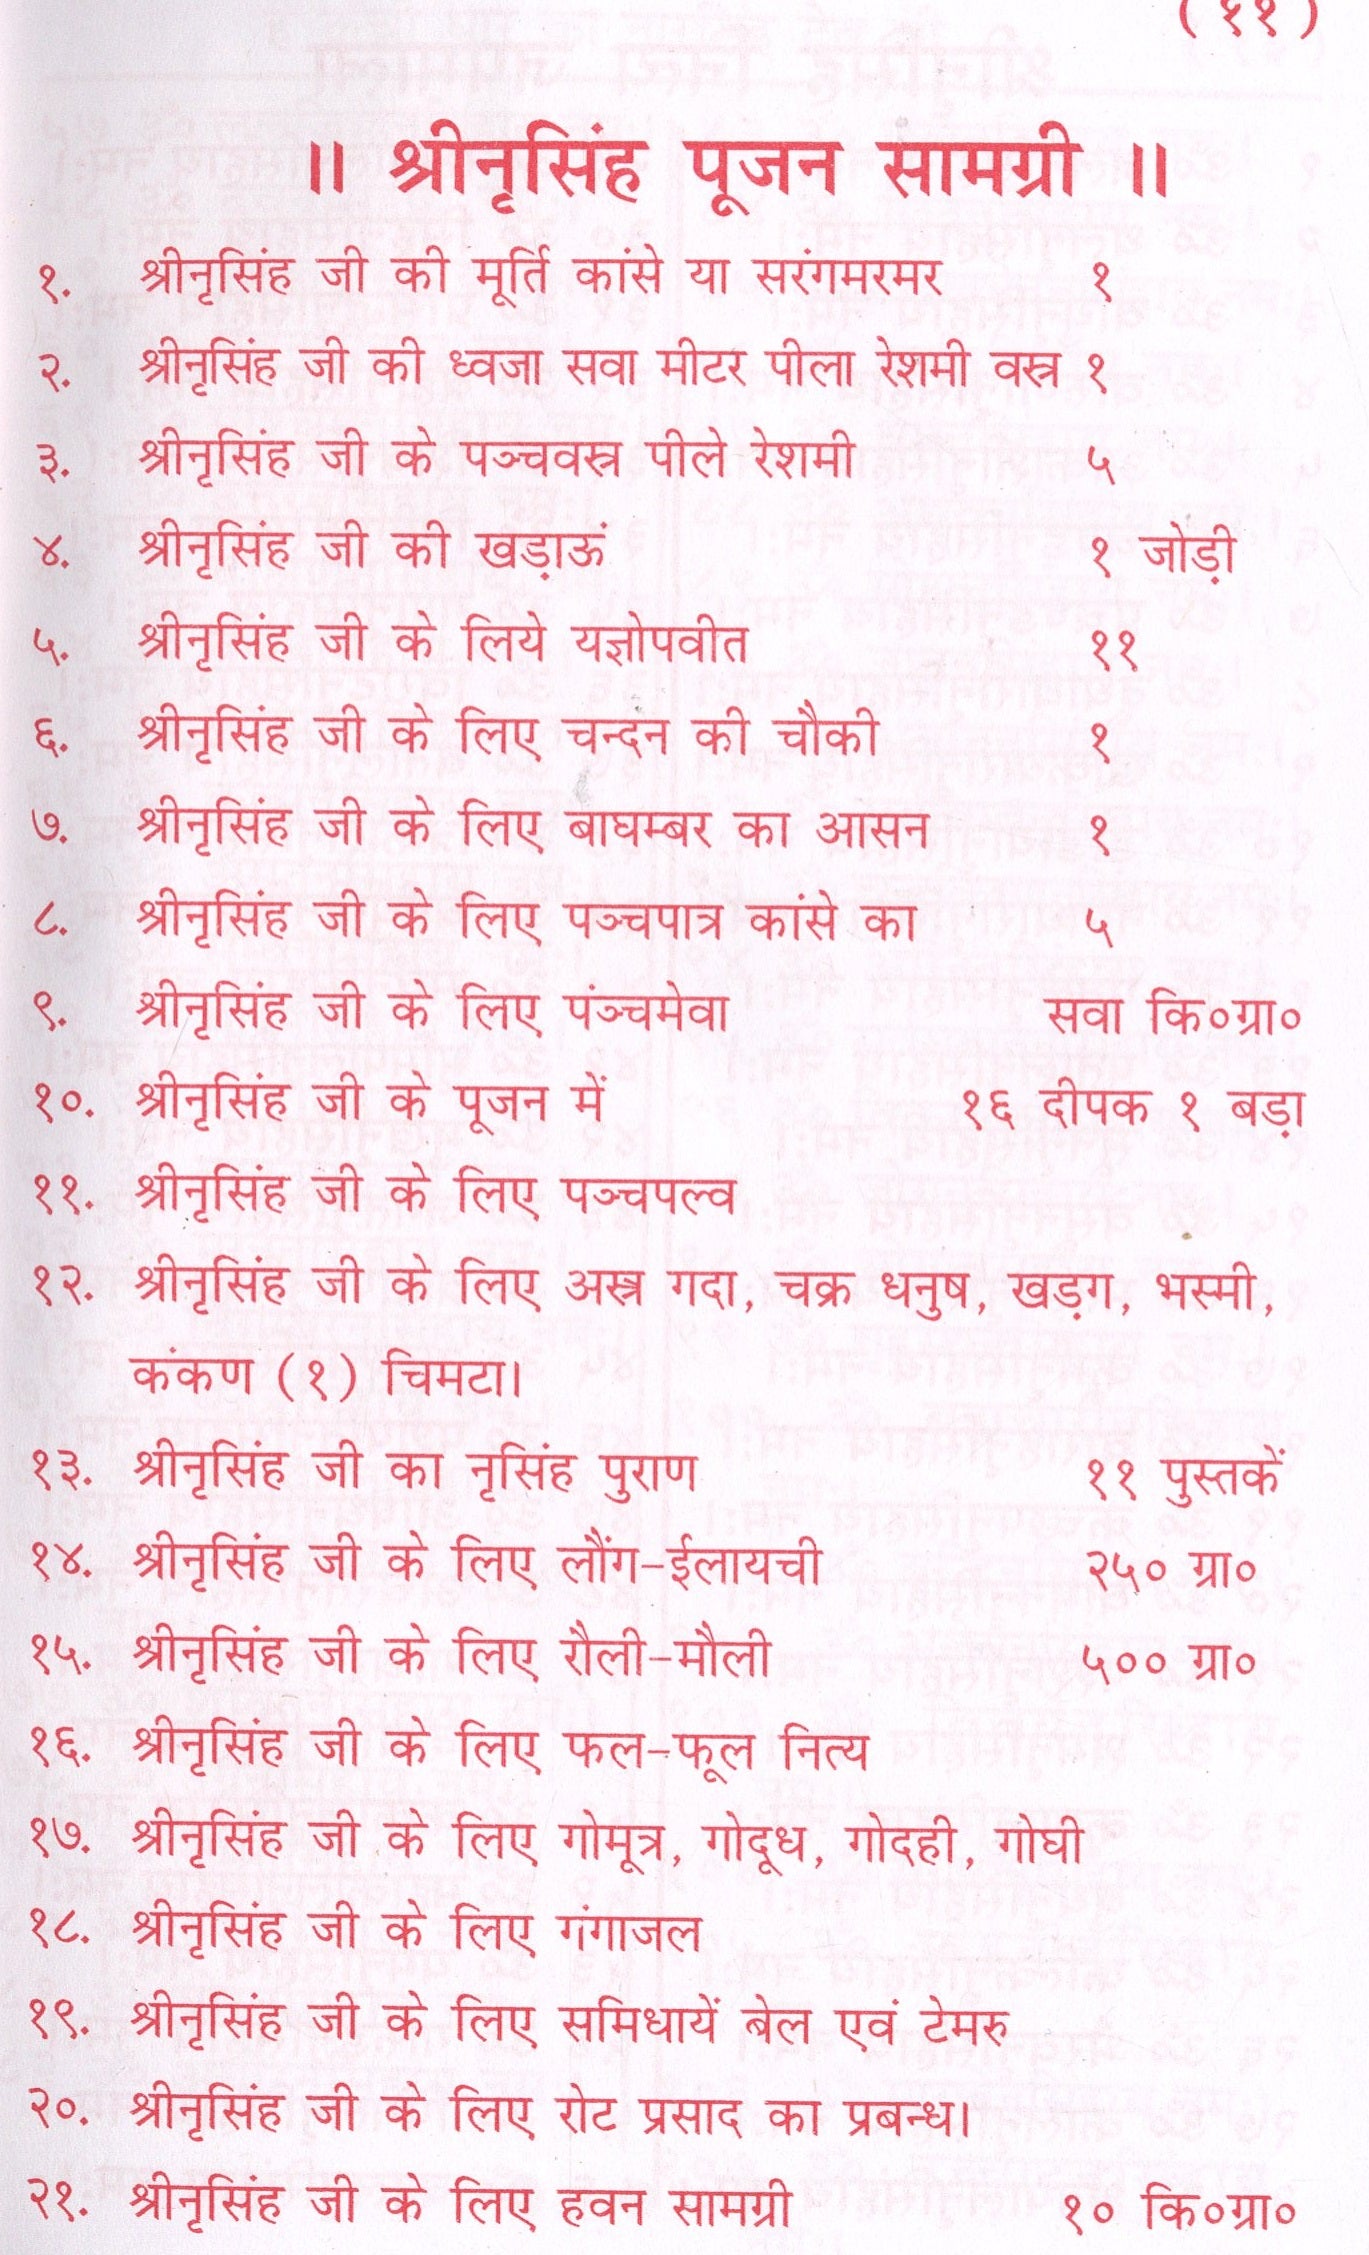 (६१)
॥ श्रीनृसिंह पूजन सामग्री ॥
१. श्रीनृसिंह जी की मूर्ति कांसे या सरंगमरमर १
२. श्रीनृसिंह जी की ध्वजा सवा मीटर पीला रेशमी वस्त्र १
३. श्रीनृसिंह जी के पञ्चवस्त्र पीले रेशमी ५
४. श्रीनृसिंह जी की खड़ाऊं १ जोड़ी
५. श्रीनृसिंह जी के लिये यज्ञोपवीत ११
६. श्रीनृसिंह जी के लिए चन्दन की चौकी १
७. श्रीनृसिंह जी के लिए बाघम्बर का आसन १
८. श्रीनृसिंह जी के लिए पञ्चपात्र कांसे का ५
९. श्रीनृसिंह जी के लिए पंञ्चमेवा सवा कि०ग्रा०
१०. श्रीनृसिंह जी के पूजन में १६ दीपक १ बड़ा
११. श्रीनृसिंह जी के लिए पञ्चपल्व
१२. श्रीनृसिंह जी के लिए अस्त्र गदा, चक्र धनुष, खड़ग, भस्मी,
कंकण (१) चिमटा।
१३. श्रीनृसिंह जी का नृसिंह पुराण ११ पुस्तकें
१४. श्रीनृसिंह जी के लिए लौंग-ईलायची २५० ग्रा०
१५. श्रीनृसिंह जी के लिए रौली-मौली ५०० ग्रा०
१६. श्रीनृसिंह जी के लिए फल-फूल नित्य
१७. श्रीनृसिंह जी के लिए गोमूत्र, गोदूध, गोदही, गोघी
१८. श्रीनृसिंह जी के लिए गंगाजल
१९. श्रीनृसिंह जी के लिए समिधायें बेल एवं टेमरु
२०. श्रीनृसिंह जी के लिए रोट प्रसाद का प्रबन्ध।
२१. श्रीनृसिंह जी के लिए हवन सामग्री १० कि०ग्रा०